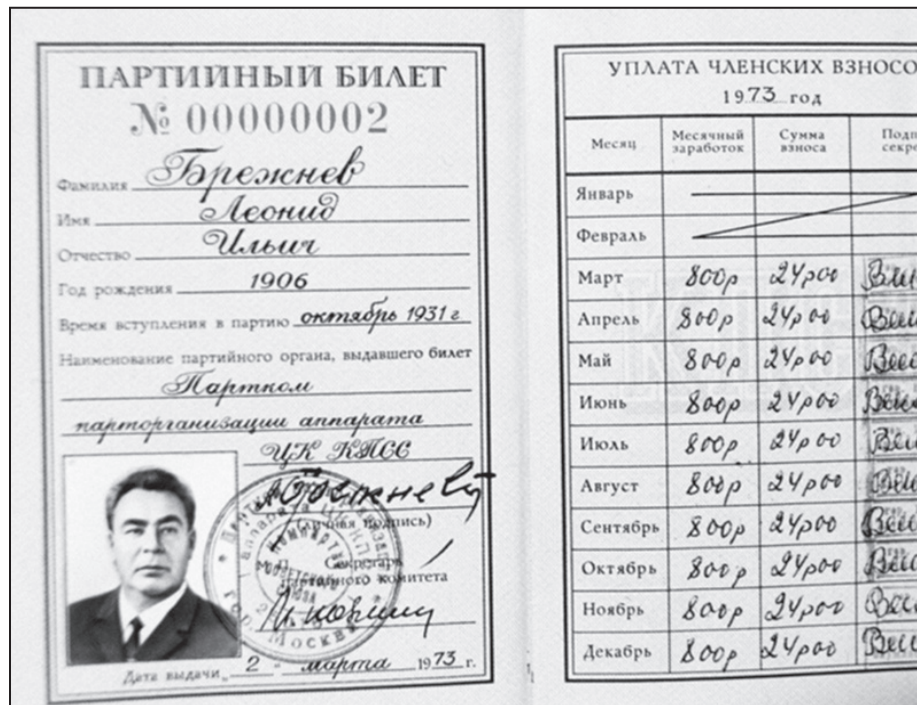 ПАРТИЙНЫЙ БИЛЕТ
№ 00000002
Фамилия Брежнев
Имя Леонид
Отчество Ильич
Год рождения 1906
Время вступления в партию октябрь 1931 г
Наименование партийного органа, выдавшего билет
Партком
парторганизации аппарата
ЦК КПСС
(личная подпись)
М.П. Секретарь
партийного комитета
гор. Москва
Дата выдачи „ 2 " марта 1973 г.
УПЛАТА ЧЛЕНСКИХ ВЗНОСО
1973 год
Месяц Месячный заработок Сумма взноса Подп секре
Январь
Февраль
Март 800р 24р00
Апрель 800р 24р00
Май 800р 24р00
Июнь 800р 24р00
Июль 800р 24р00
Август 800р 24р00
Сентябрь 800р 24р00
Октябрь 800р 24р00
Ноябрь 800р 24р00
Декабрь 800р 24р00